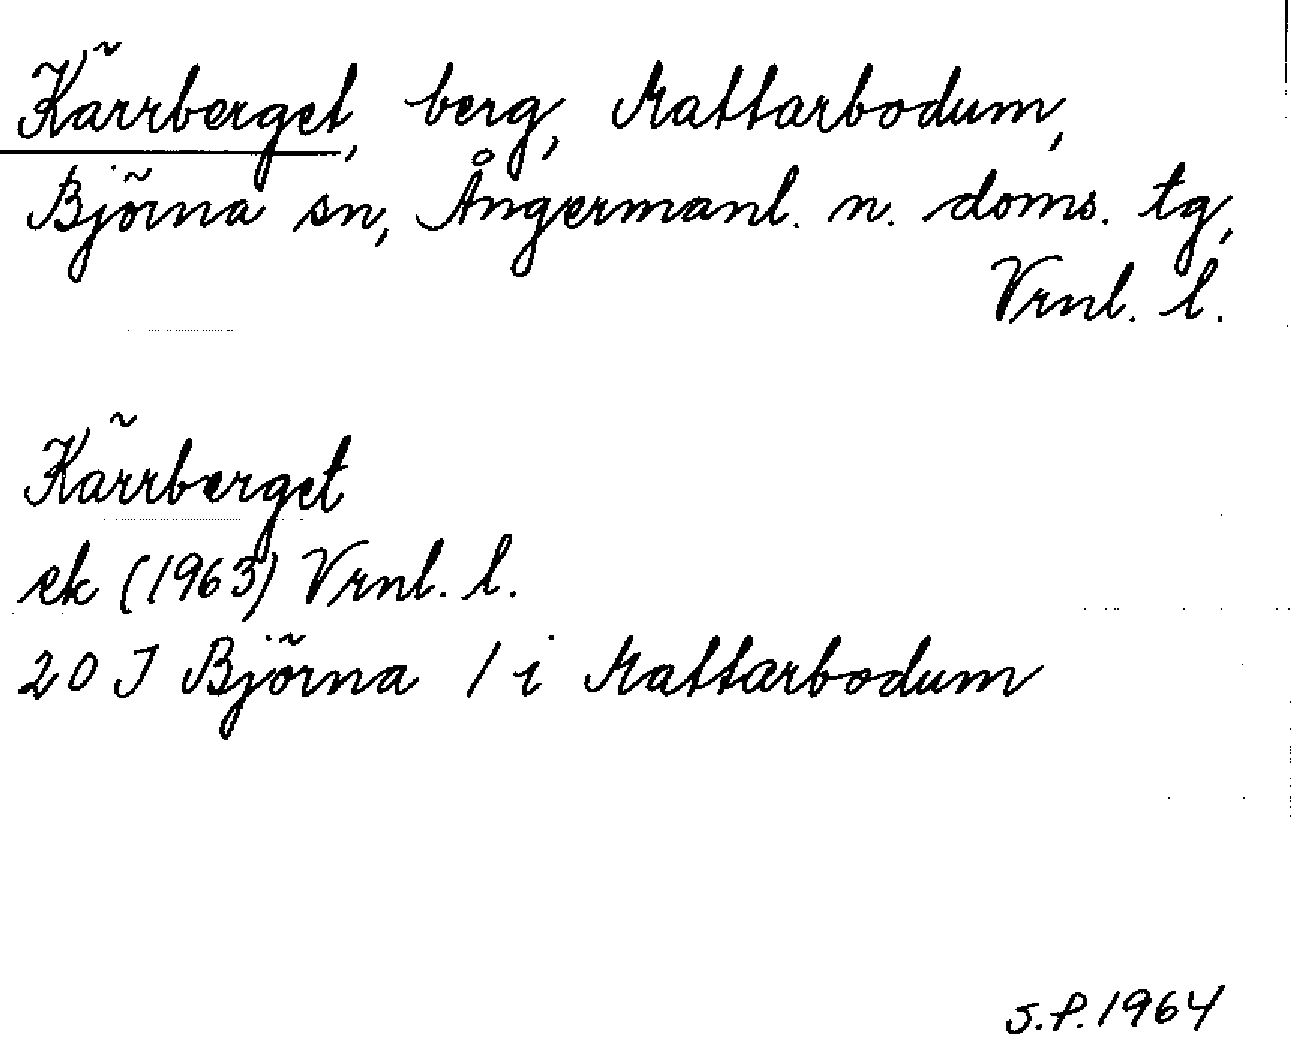 Kärrberget, berg, Mattarbodum,
Björna sn, Ångermanl. n. doms. tg,
Vrnl. l.
Kärrberget
ek (1963) Vrnl. l.
20 J Björna / i Mattarbodum
S.P. 1964